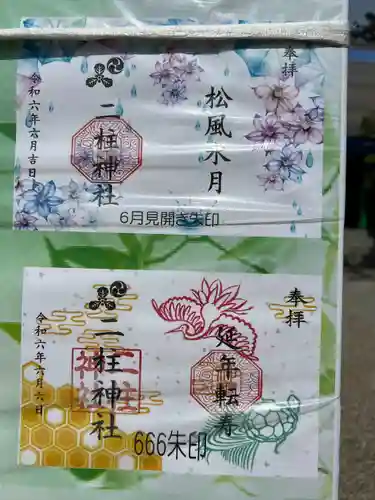 奉拝
松風水月
二柱神社
令和六年六月吉日
6月見開き朱印
奉拝
延年転寿
二柱神社
令和六年六月六日
666朱印